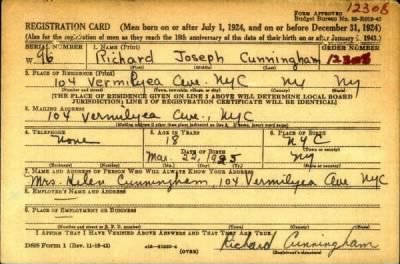 12308
Form Approved
Budget Bureau No. 33-R012-43
REGISTRATION CARD (Men born on or after July 1, 1924, and on or before December 31, 1924)
(Also for the registration of men as they reach the 18th anniversary of the date of their birth on or after January 1, 1943.)
SERIAL NUMBER 1. NAME (Print) ORDER NUMBER
W 96 Richard Joseph Cunningham 12308
(First) (Middle) (Last)
2. PLACE OF RESIDENCE (Print)
104 Vermilyea Ave. NYC NY NY
(Number and street) (Town, township, village, or city) (County) (State)
[THE PLACE OF RESIDENCE GIVEN ON LINE 2 ABOVE WILL DETERMINE LOCAL BOARD
JURISDICTION; LINE 2 OF REGISTRATION CERTIFICATE WILL BE IDENTICAL]
3. MAILING ADDRESS
104 Vermilyea Ave., NYC
4. TELEPHONE 5. AGE IN YEARS 6. PLACE OF BIRTH
None 18 NYC
(Town or county)
DATE OF BIRTH
Mar. 22, 1925 NY
(Exchange) (Number) (Mo.) (Day) (Yr.) (State or country)
7. NAME AND ADDRESS OF PERSON WHO WILL ALWAYS KNOW YOUR ADDRESS
Mrs. Helen Cunningham, 104 Vermilyea Ave NYC
8. EMPLOYER'S NAME AND ADDRESS
9. PLACE OF EMPLOYMENT OR BUSINESS
(Number and street or R. F. D. number) (Town) (County) (State)
I AFFIRM THAT I HAVE VERIFIED ABOVE ANSWERS AND THAT THEY ARE TRUE.
DSS Form 1 (Rev. 11-16-42) (OVER) Richard Cunningham